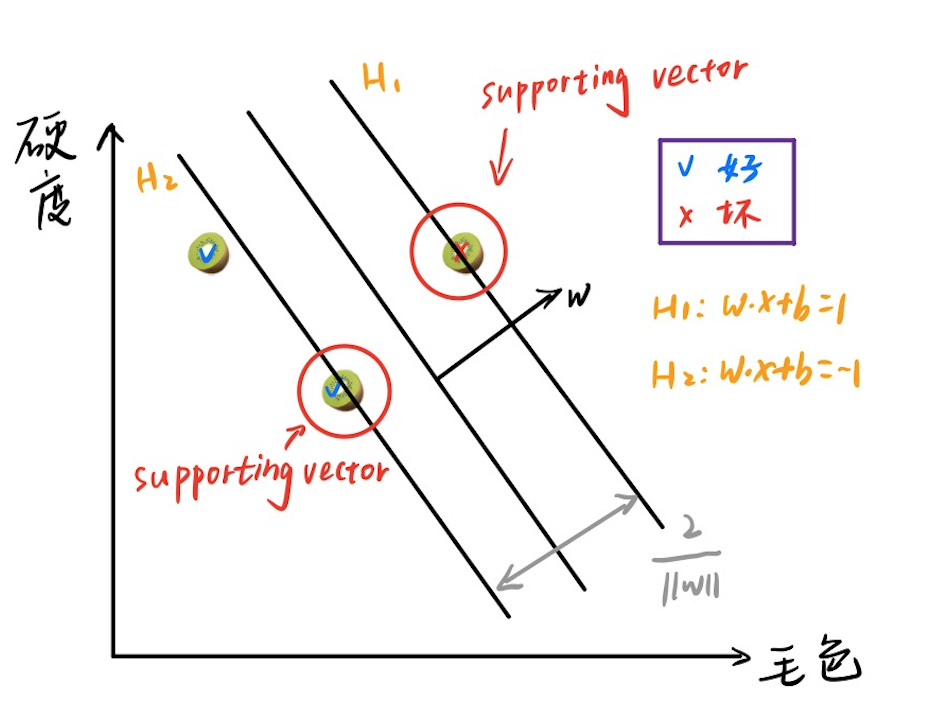 H₁
supporting vector
硬
度
H₂
✓ 好
× 坏
w
H₁: w·x+b=1
H₂: w·x+b=-1
supporting vector
2
||w||
毛色